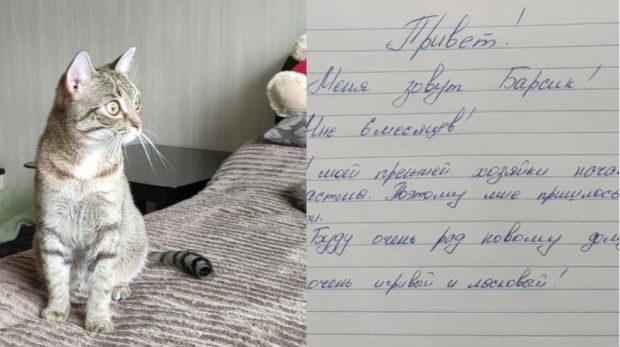 Привет!
Меня зовут Барсик!
Мне 6 месяцев!
моей прежней хозяйки нача
астма. Поэтому мне пришлось
Буду очень рад новому дом
очень игривой и ласковый!